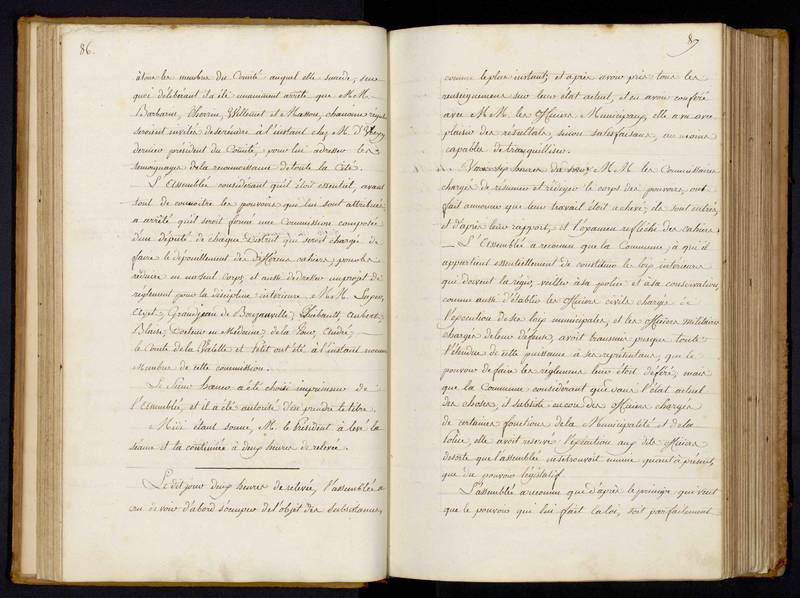 86.
être les membres du Comité auquel elle succede, sur
quoi délibérant il a été unanimement arrêté que M.M.
Barbarin, Willemet et Masson, chanoine régulier
seroient invités de se rendre à l'instant chez M. D'
dernier président du Comité, pour lui adresser les
temoignages de la reconnoissance de toute la Cité.
L'Assemblée considérant qu'il étoit essentiel, avant
tout de connoitre les pouvoirs qui lui sont attribués
a arrêté qu'il seroit formé une Commission composée
d'un député de chaque District qui seroit chargée de
faire le dépouillement des différens cahiers, pour les
réduire en un seul corps, et aussi de dresser un projet de
réglement pour la discipline intérieure. M.M.
Grandjean de Bouzanville, Thiebault, Aubert,
Plassiard, Docteur en Médecine, de la André, —
le Comte de la Valette et Petit ont été à l'instant nommés
membres de cette commission.
Le Sieur haener a été choisi imprimeur de
l'Assemblée, et il a été autorisé d'en prendre le titre.
Midi étant sonné, M. le Président a levé la
séance et l'a continuée à deux heures de relevée.
Le dit jour deux heures de relevée, l'assemblée a
cru devoir d'abord s'occuper de l'objet des subsistances,
87
comme le plus instant; et après avoir pris tous les
renseignemens sur leur état actuel, et en avoir conféré
avec M.M. les Officiers Municipaux, elle a vu avec
plaisir des résultats, sinon satisfaisans, au moins
capables de tranquilliser.
Vers six heures du soir M.M. les Commissaires
chargés de résumer et rédiger le corps des pouvoirs, ont
fait annoncer que leur travail étoit achevé; ils sont entrés,
et d'après leur rapport, et l'examen réfléchi des cahiers
— L'Assemblée a reconnu que la Commune, à qui il
appartient essentiellement de constituer les loix intérieures
qui doivent la régir, veiller à sa police et à sa conservation,
comme aussi d'établir les Officiers civils chargés de
l'exécution de ses loix municipales, et les Officiers militaires
chargés de leur défense, avoit transmis presque toute
l'étendue de cette puissance à ses représentans, que le
pouvoir de faire les réglemens leur étoit déféré; mais
que la Commune considérant que dans l'état actuel
des choses, il subsiste encore des Officiers chargés
de certaines fonctions de la Municipalité et de la
Police, elle avoit réservé l'exécution aux dits Officiers
de sorte que l'assemblée ne se trouvoit munie quant à présent,
que du pouvoir législatif.
L'assemblée a reconnu que d'après le principe qui veut
que le pouvoir qui lui fait la loi, soit parfaitement